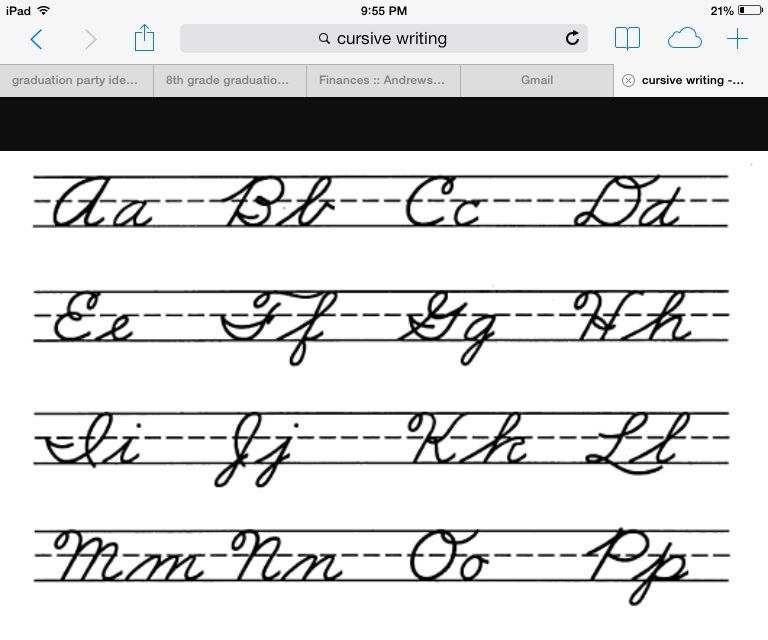 iPad 9:55 PM 21%
cursive writing
graduation party ide... 8th grade graduatio... Finances :: Andrews... Gmail cursive writing -...
Aa Bb Cc Dd
Ee Ff Gg Hh
Ii Jj Kk Ll
Mm Nn Oo Pp